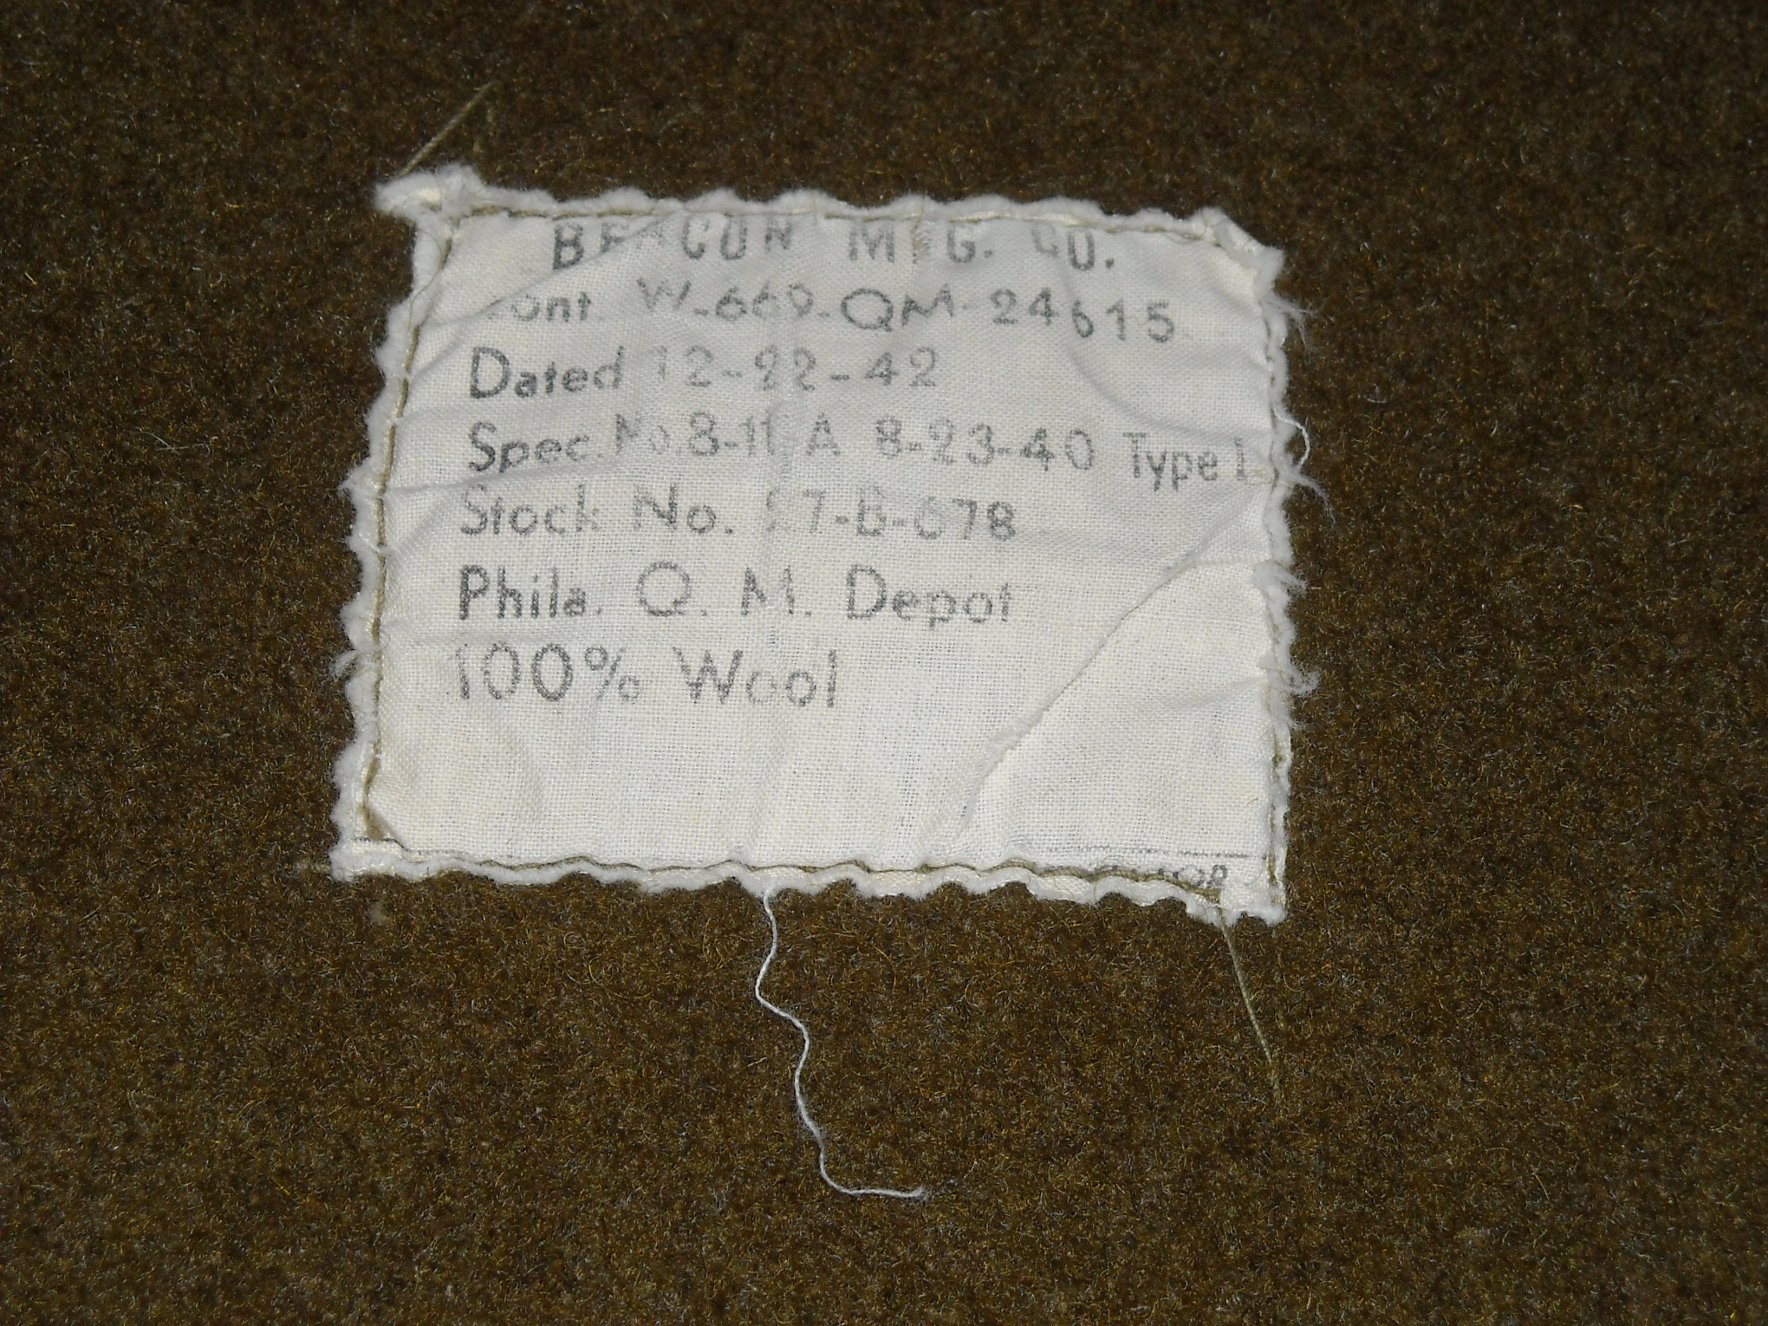 BEACON MFG. CO.
Cont. W-669-QM-24615
Dated 12-22-42
Spec. No. 8-11 A 8-23-40 Type I
Stock No. 27-B-678
Phila. Q. M. Depot
100% Wool